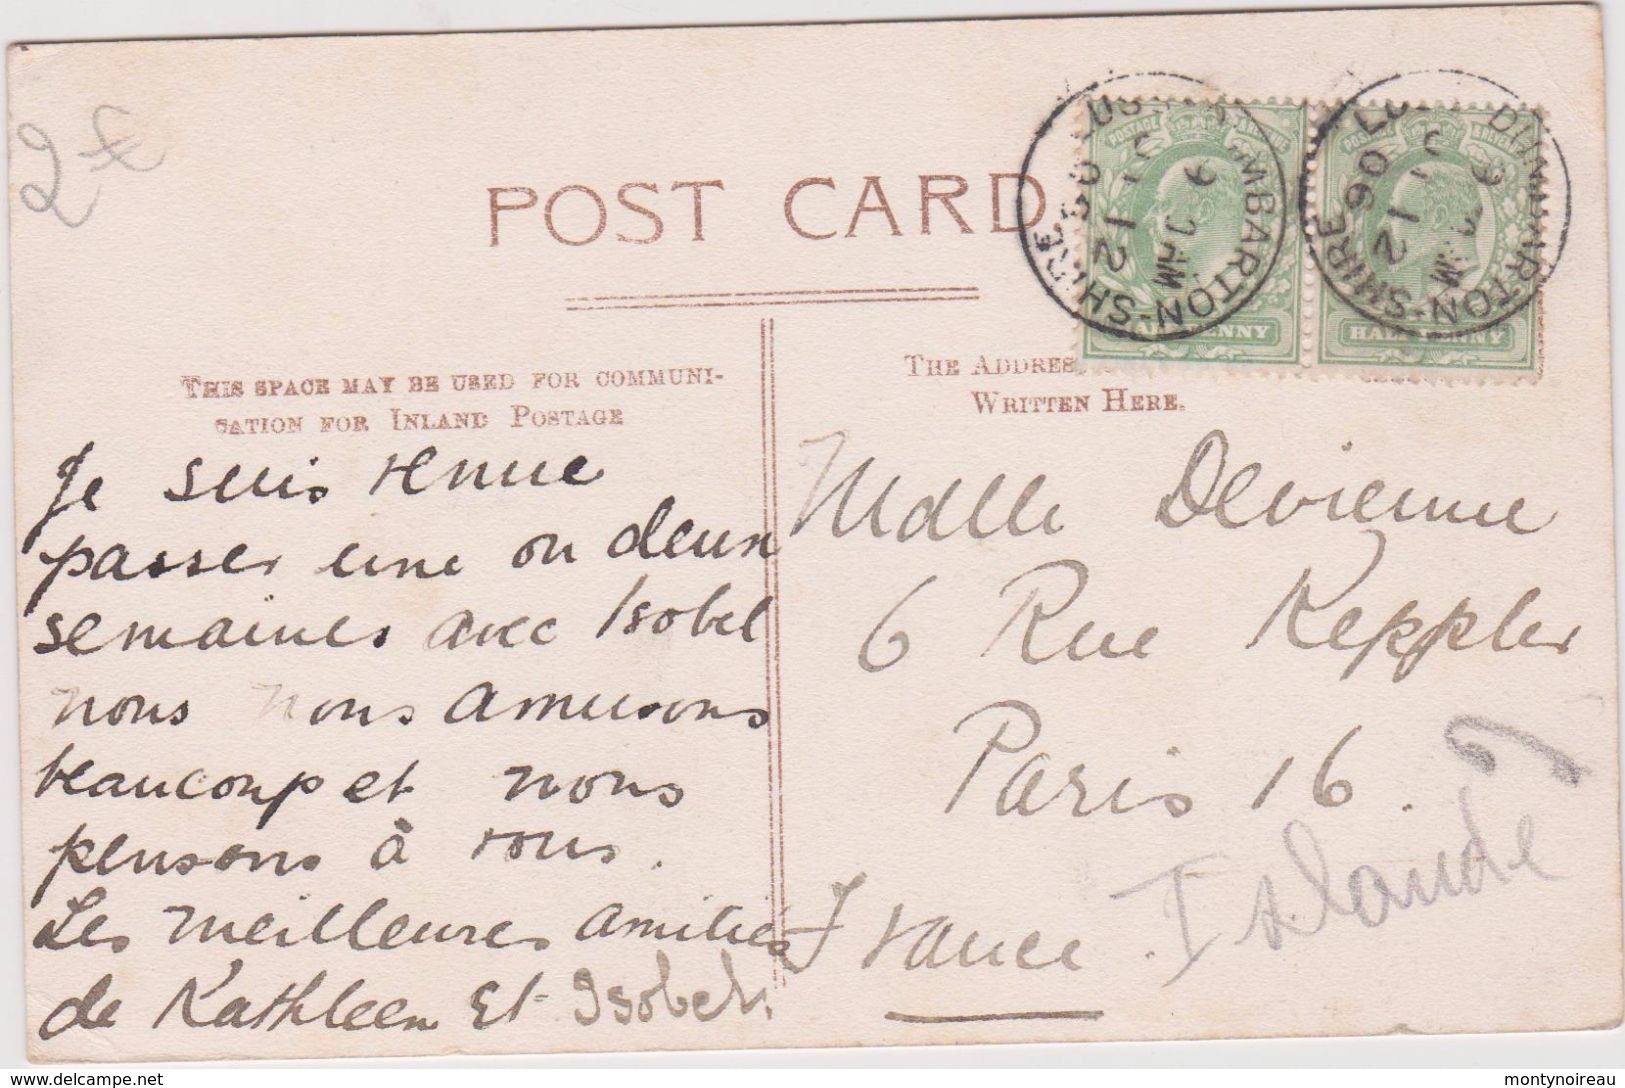 2£
POST CARD
THIS SPACE MAY BE USED FOR COMMUNI-
CATION FOR INLAND POSTAGE
THE ADDRES
WRITTEN HERE.
POSTAGE REVENUE
HALFPENNY
HALFPENNY
LUSS DUMBARTON-SHIRE
9 JAM
12
06
LU DUMBARTON-SHIRE
12
06
Je suis venue
passer une ou deux
semaines avec Isobel
nous nous amusons
beaucoup et nous
pensons à vous.
Les meilleures amitiés
de Kathleen et Isobel.
Mdlle Devienne
6 Rue Keppler
Paris 16.
France
Islande
delcampe.net
montynoireau